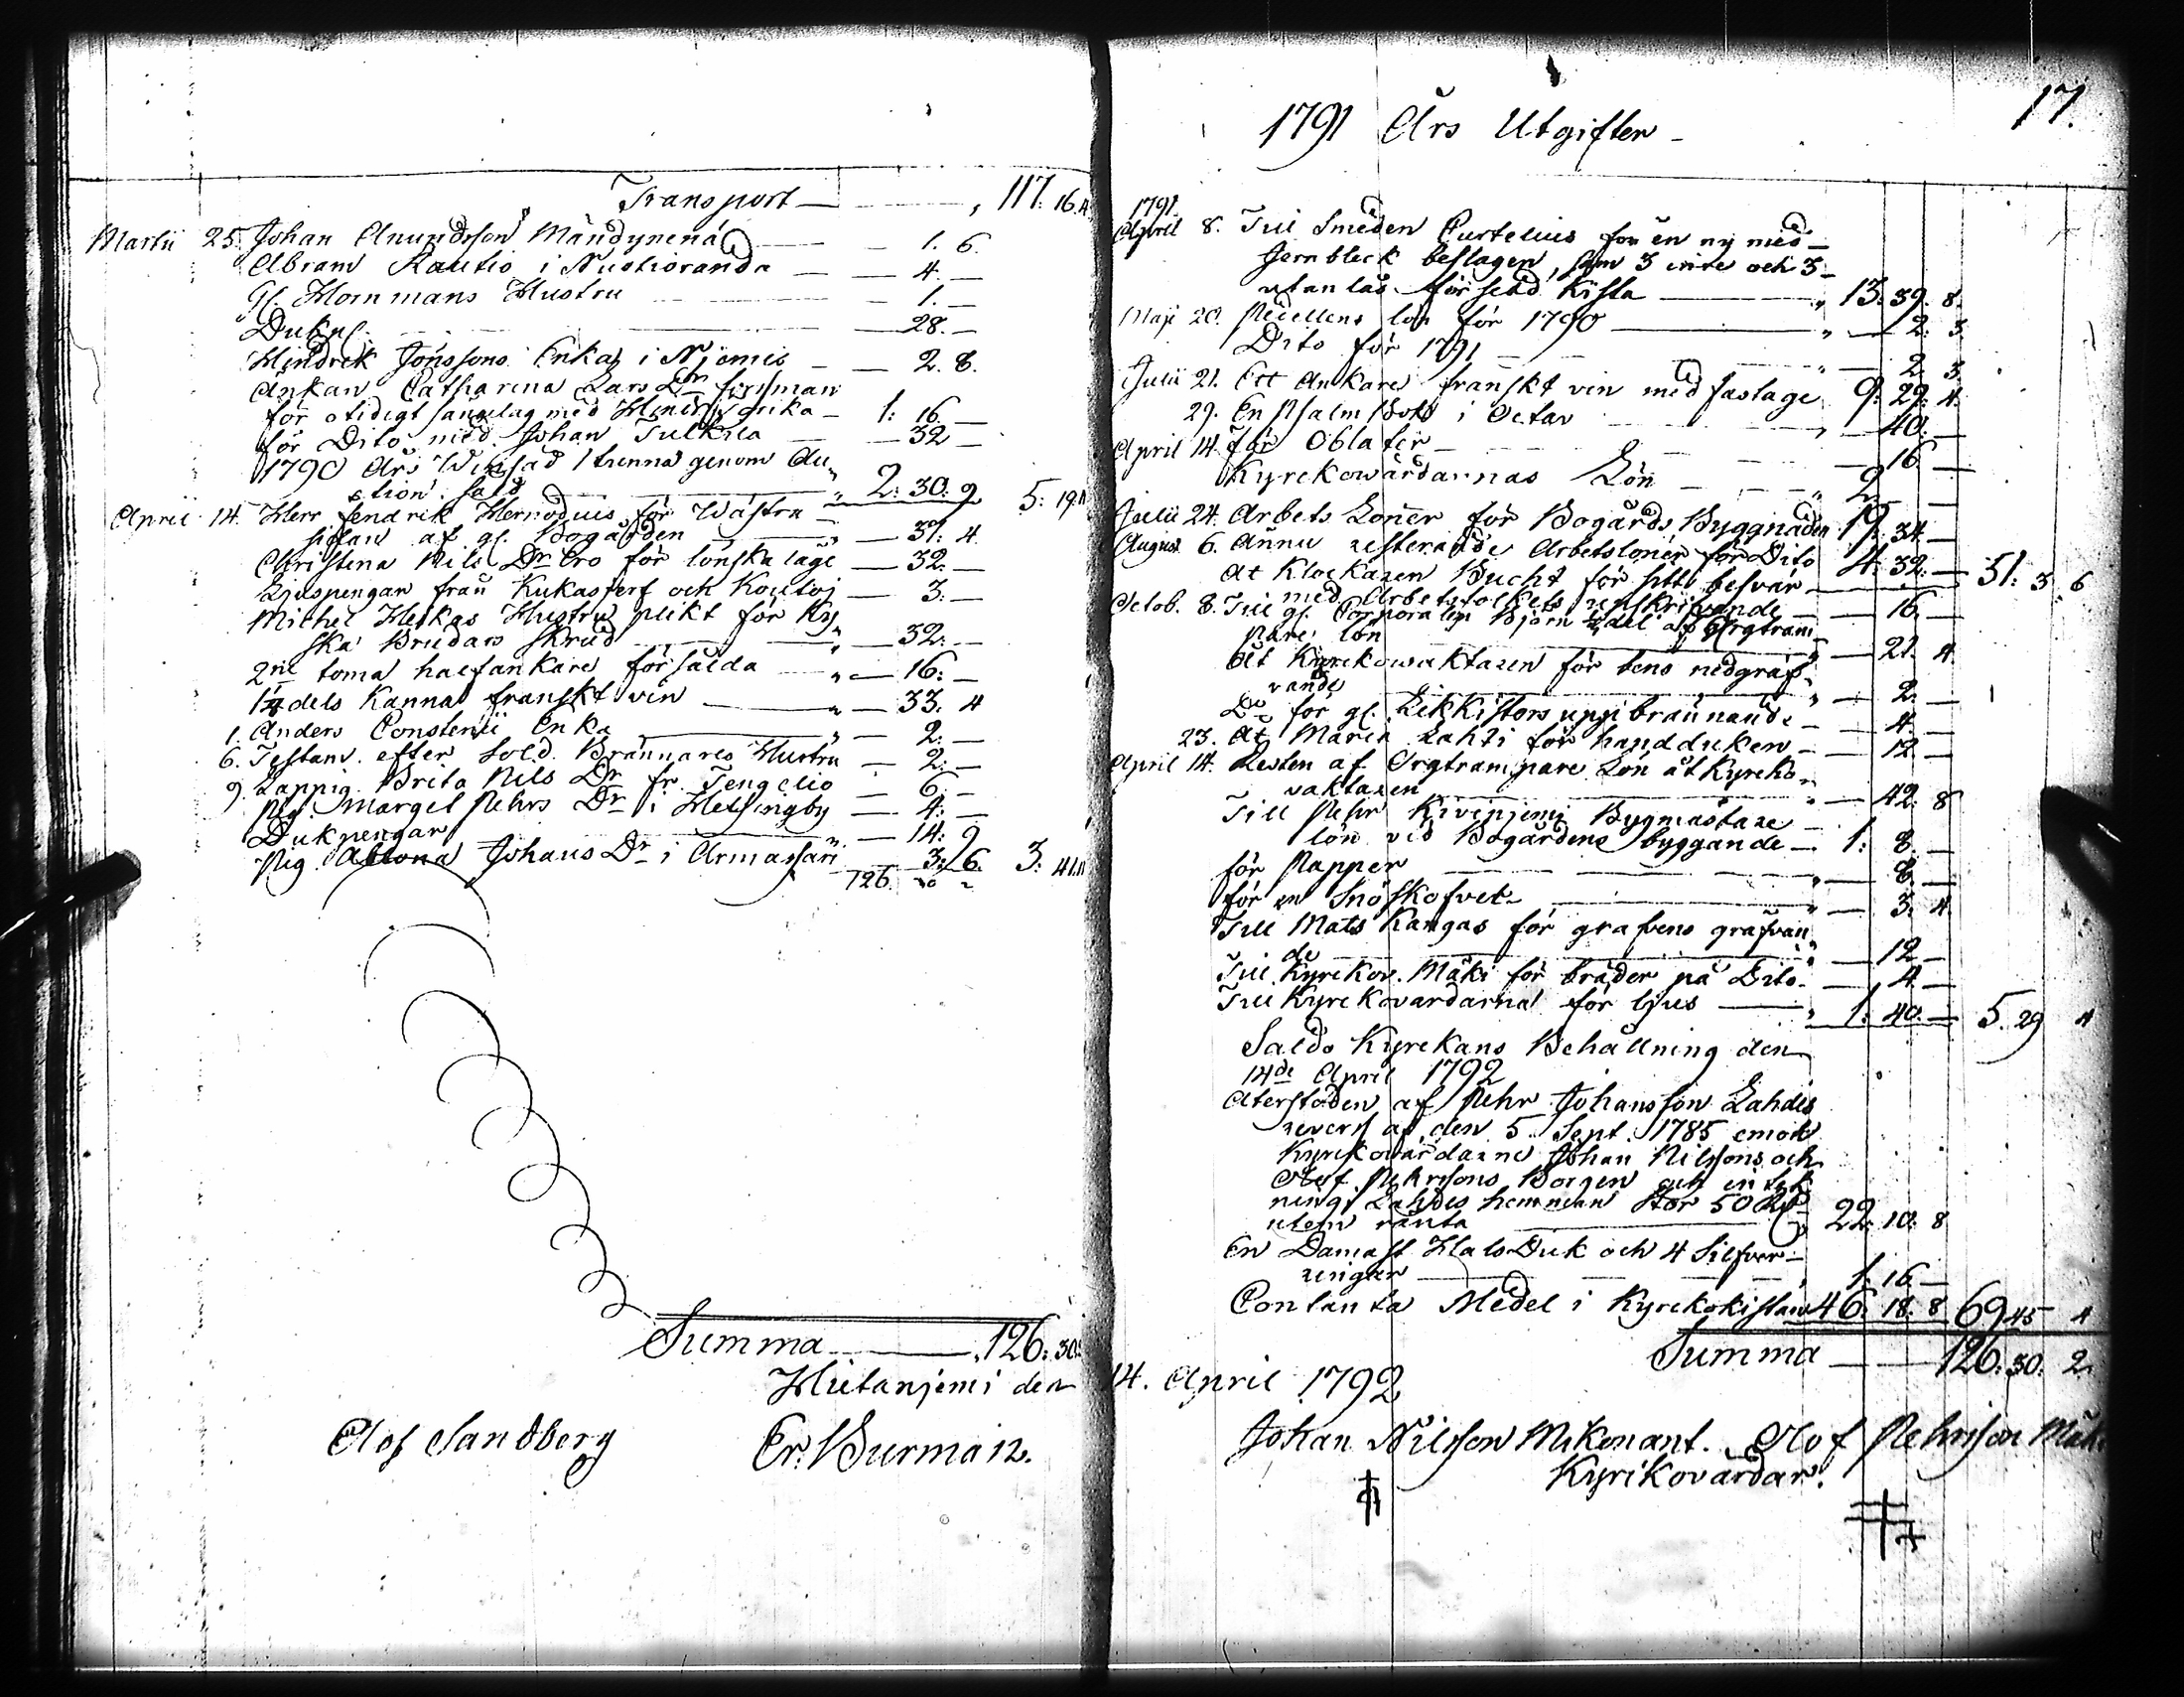 Transport — 117. 16. 4
Martii 25. Johan Anundsson Mändynenä — 1. 6.
Abram Rautio i Nustioranda — 4. —
Gl. Hornmans Hustru — 1. —
Dukp. — 28. —
Hindrik Jönssons Enka i Njemis — 2. 8.
Änkan Catharina Lars Dr
för otidigt sänglag med — 1: 16 —
för Dito med Johan Tulkila — 32 —
1790 Års 1 tunna genom Au-
ction såld — 2: 30: 9 5: 19.
April 14. Herr fendrik Hernodius för Wästra
sidan af gl. Bogården — 37: 4
Christina Nils Dr Ero för lönskaläge — 32. —
Ljuspengar från Kukasjerf och — 3. —
Michel Heikas Hustru plikt för Ky
ska Brudars skrud — 32. —
2ne toma halfankare försålda — 16: —
1/4 dels Kanna franskt vin — 33. 4
1. Anders Constenii Enka — 2. —
6. Testam. efter Sold. Brännares Hustru — 2. —
9. Lappig. Brita Nils Dr fr. Tengelio — 6. —
Pig. Margel Pehrs Dr i Helsingby — 4: —
Dukpengar — 14: 9
Pig. Johans Dr i Armassari — 3: 6. 3: 41.
126
Summa — 126: 30:
Hietanjemi den
Olof Sandberg Er. Burman.
17.
1791 Års Utgifter —
1791.
April 8. Til Smeden Curtelius för en ny med
Jernbleck beslagen, som 3 inre och 3
utanlås försedd Kista — 13. 39. 8.
Maji 20. Pedellens lön för 1790 — 2: 3.
Dito för 1791 — 2. 3.
Julii 21. Ett Ankare franskt vin med fastage 9: 29: 4.
29. En Psalm Bok i Octav — 40. —
April 14. för Oblater — 16. —
Kyrckowärdarnas Lön — 2 —
Julii 24. Arbets Löner för Bogårds Byggnaden 19. 34 —
August 6. Ännu resterande Arbetslöner för Dito 4. 32. — 51: 3. 6
At Klockaren Bucht för sitt besvär
med Arbetsfolkets upskrifvande — 16. —
Octob. 8. Til gl. Corporalen Björn del af Orgtram-
pare lön — 21. 4.
Åt Kyrckowaktaren för bens nedgräf-
vande — 2. —
Do för gl. Likkistors uppbrännande — 4. —
23. At Maria Lahti för handduken — 12 —
April 14. Resten af Orgtrampare Lön åt Kyrcko-
vaktaren — 42. 8
Till Pehr Kivinjemi Bygmästare
lön vid Bogårdens byggande — 1: 8. —
för Papper — 8. —
för en Snöskofvel — 3. 4.
Till Mats Kangas för grafvens gräfvan
de — 12 —
Til Kyrckov. Mäki för bräder på Dito — 4. —
Till Kyrckovärdarna för ljus — 1: 40. — 5. 29 4
Saldo Kyrckans Behållning den
14de April 1792
Återstoden af Pehr Johansson Lahdes
revers af den 5 Sept. 1785 emot
Kyrckovärdarne Johan Nilssons och
Olof Pehrssons Borgen och intek
ning i Lahdes hemman stor 50 Rd
utom ränta — 22. 10. 8
En Damast HalsDuk och 4 Silfver-
ringar — 1. 16 —
Contanta Medel i Kyrckokistan 46. 18. 8 69 45 4
Summa — 126: 30. 2.
14. April 1792
Johan Nilsson Olof Pehrsson
Kyrckovärdar.